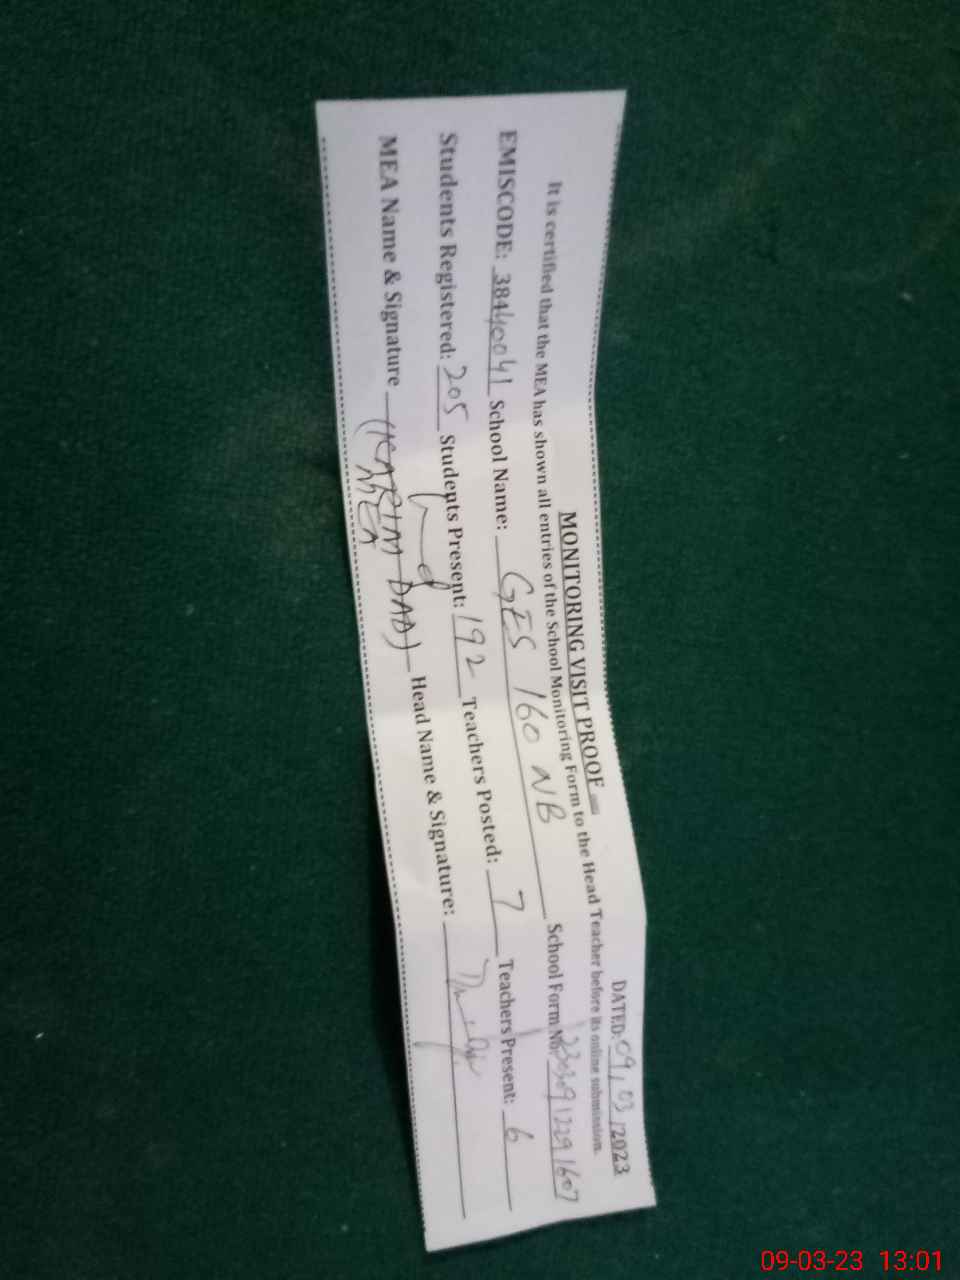 MONITORING VISIT PROOF
DATED: 09/03/2023
It is certified that the MEA has shown all entries of the School Monitoring Form to the Head Teacher before its online submission.
EMISCODE: 38440041 School Name: GES 160 NB School Form No
Students Registered: 205 Students Present: 192 Teachers Posted: 7 Teachers Present: 6
MEA Name & Signature (KARIM DAD) Head Name & Signature:
MEA
09-03-23 13:01